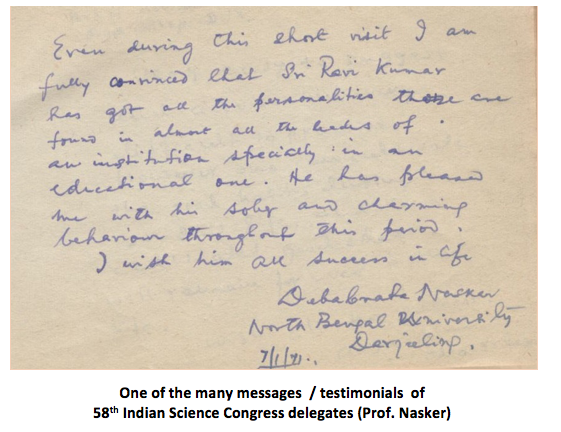 Even during this short visit I am
fully convinced that Sri Ravi Kumar
has got all the personalities those are
found in almost all the heads of
an institution specially in an
educational one. He has pleased
me with his sober and charming
behaviour throughout this period.
I wish him all success in life
Debabrata Naskar
North Bengal University
Darjeeling.
7/1/71..
One of the many messages / testimonials of
58th Indian Science Congress delegates (Prof. Nasker)